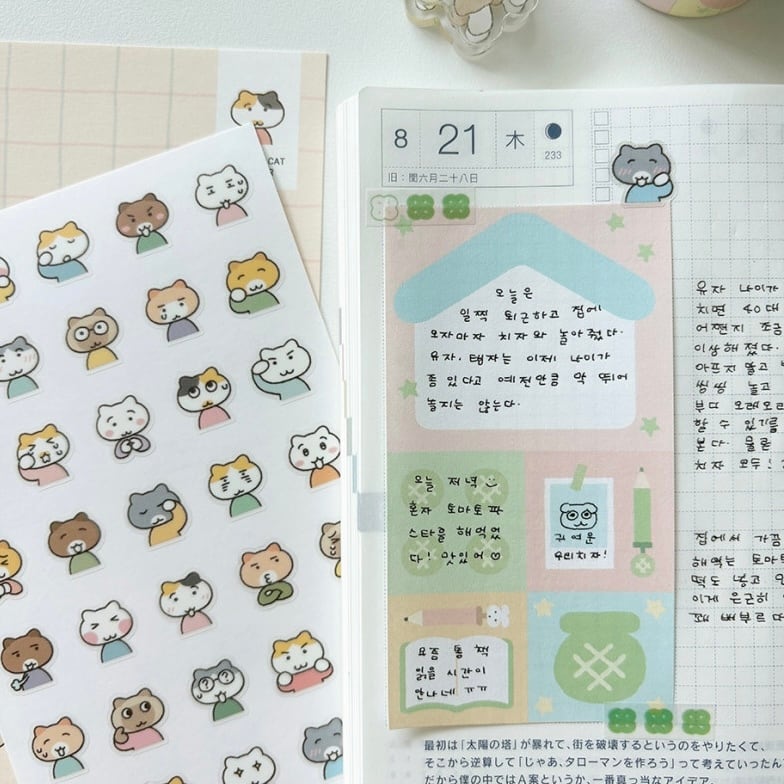 CAT
8 21 木
233
旧:閏六月二十八日
오늘은
일찍 퇴근하고 집에
오자마자 치자와 놀아줬다.
유자, 탱자는 이제 나이가
좀 있다고 예전만큼 막 뛰어
놀지는 않는다.
오늘 저녁
혼자 토마토 파
스타를 해먹었
다! 맛있어
귀여운
우리치자!
요즘 통 책
읽을 시간이
안나네 ㅠㅠ
유자 나이가
치면 40대
어쩐지 조금
이상해졌다.
아프지 말고
씽씽 놀고
부디 오래오래
할 수 있기를
본다. 물론
치자 모두
집에서 가끔
해먹는 토마토
떡도 넣고
이게 은근히
꽤 배부르다
最初は「太陽の塔」が暴れて、街を破壊するというのをやりたくて、
そこから逆算して「じゃあ、タローマンを作ろう」って考えていった
だから僕の中ではA案というか、一番真っ当なアイデア